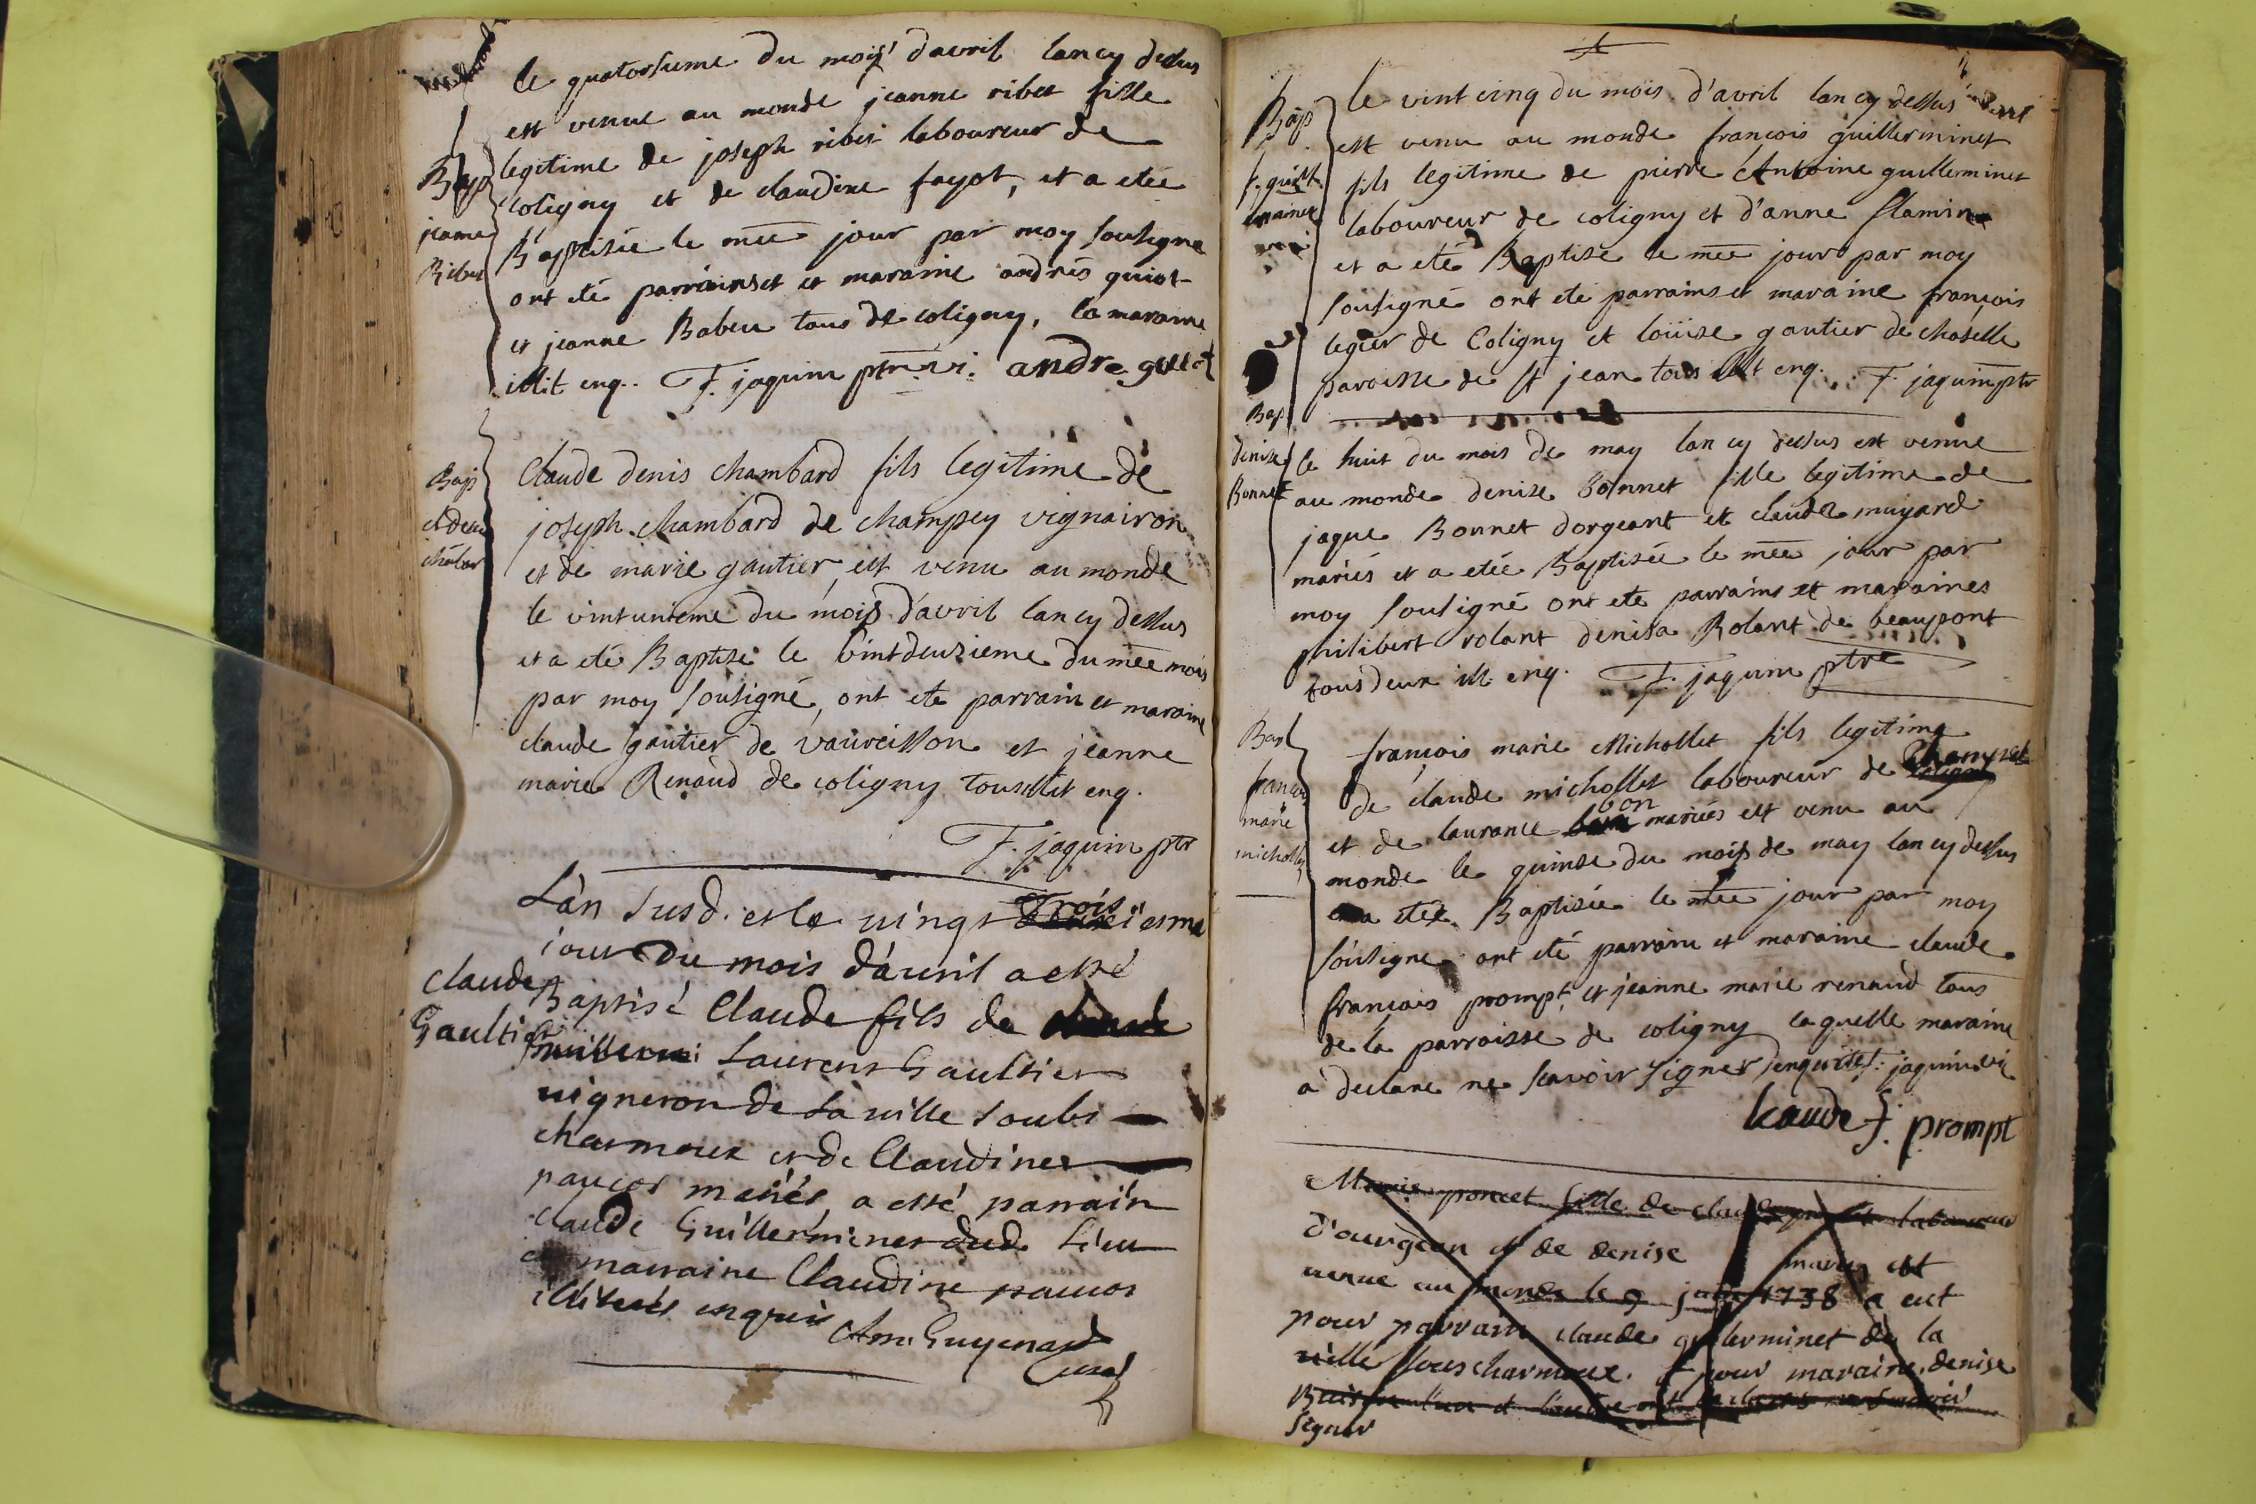 le quatorsieme du mois d'avril lan cy dessus
est venue au monde jeanne ribet fille
legitime de joseph ribet laboureur de
coligny et de claudine fayot, et a etée
Baptisée le mee jour par moy sousigne
ont eté parrainset et maraine andrés guiot
et jeanne Babeu tous de coligny, la maraine
illit enq. F. jaquin ptre vi. andre guiot
Bap
jeanne
Ribet
Claude denis chambard fils legitime de
joseph chambard de champey vignairon
et de marie gautier est venu au monde
le vintunieme du mois d'avril lan cy dessus
et a eté Baptisé le vintdeuzieme du mee mois
par moy sousigné, ont eté parrain et maraine
claude gautier de vaureisson et jeanne
marie Renaud de coligny tous illit enq.
F. jaquin ptr
Bap
cl denis
chabar
L'an susd. et le vingt trois iesme
iour du mois d'auril a esté
Baptisé Claude fils de
Laurent Gaultier
uigneron de la uille soubs
charmoux et de Claudine
paucot mariés, a esté parrain
claude Guillerminet dud. lieu
et marraine Claudine paucot
illiterés enquis
Ant. Guyenard
Curé
Claude
Gaultier
le vint cinq du mois d'avril lan cy dessus
est venu au monde françois guillerminet
fils legitime de pierre Antoine guillerminet
laboureur de coligny et d'anne flamin
et a eté Baptisé le mee jour par moy
sousigné ont eté parrains et maraine françois
legier de Coligny et loüise gautier de chaselle
paroisse de st jean tous illit enq. F. jaquin ptr
Bap
f. guill
erminet
le huit du mois de may lan cy dessus est venue
au monde denise Bonnet fille legitime de
jaque Bonnet dorgeant et claude muyard
mariés et a etée Baptisée le mee jour par
moy sousigné ont ete parrains et maraines
philibert rolant denisa Rolant de beaupont
tous deux ill. enq. F. jaquin ptre
Bap
denise
Bonnet
françois marie Michollet fils legitime
de claude michollet laboureur de champset
et de laurance bon mariés est venu au
monde le quinse du mois de may lan cy dessus
a etée Baptisée le mee jour par moy
sousigne ont eté parrain et maraine claude
françois prompt et jeanne marie renaud tous
de la parroisse de coligny laquelle maraine
a declare ne scavoir signer enquise f. jaquin vi
Claude f. prompt
Bap
françois
marie
michollet
Marie poncet fille de claude poncet laboureur
d'ourgeon et de denise mariés est
venue au monde le 9 juin 1738 a eut
pour parrain claude guilerminet de la
uille sous charmoux. et pour maraine denise
l'un et l'autre ont declarés ne savoir
signer